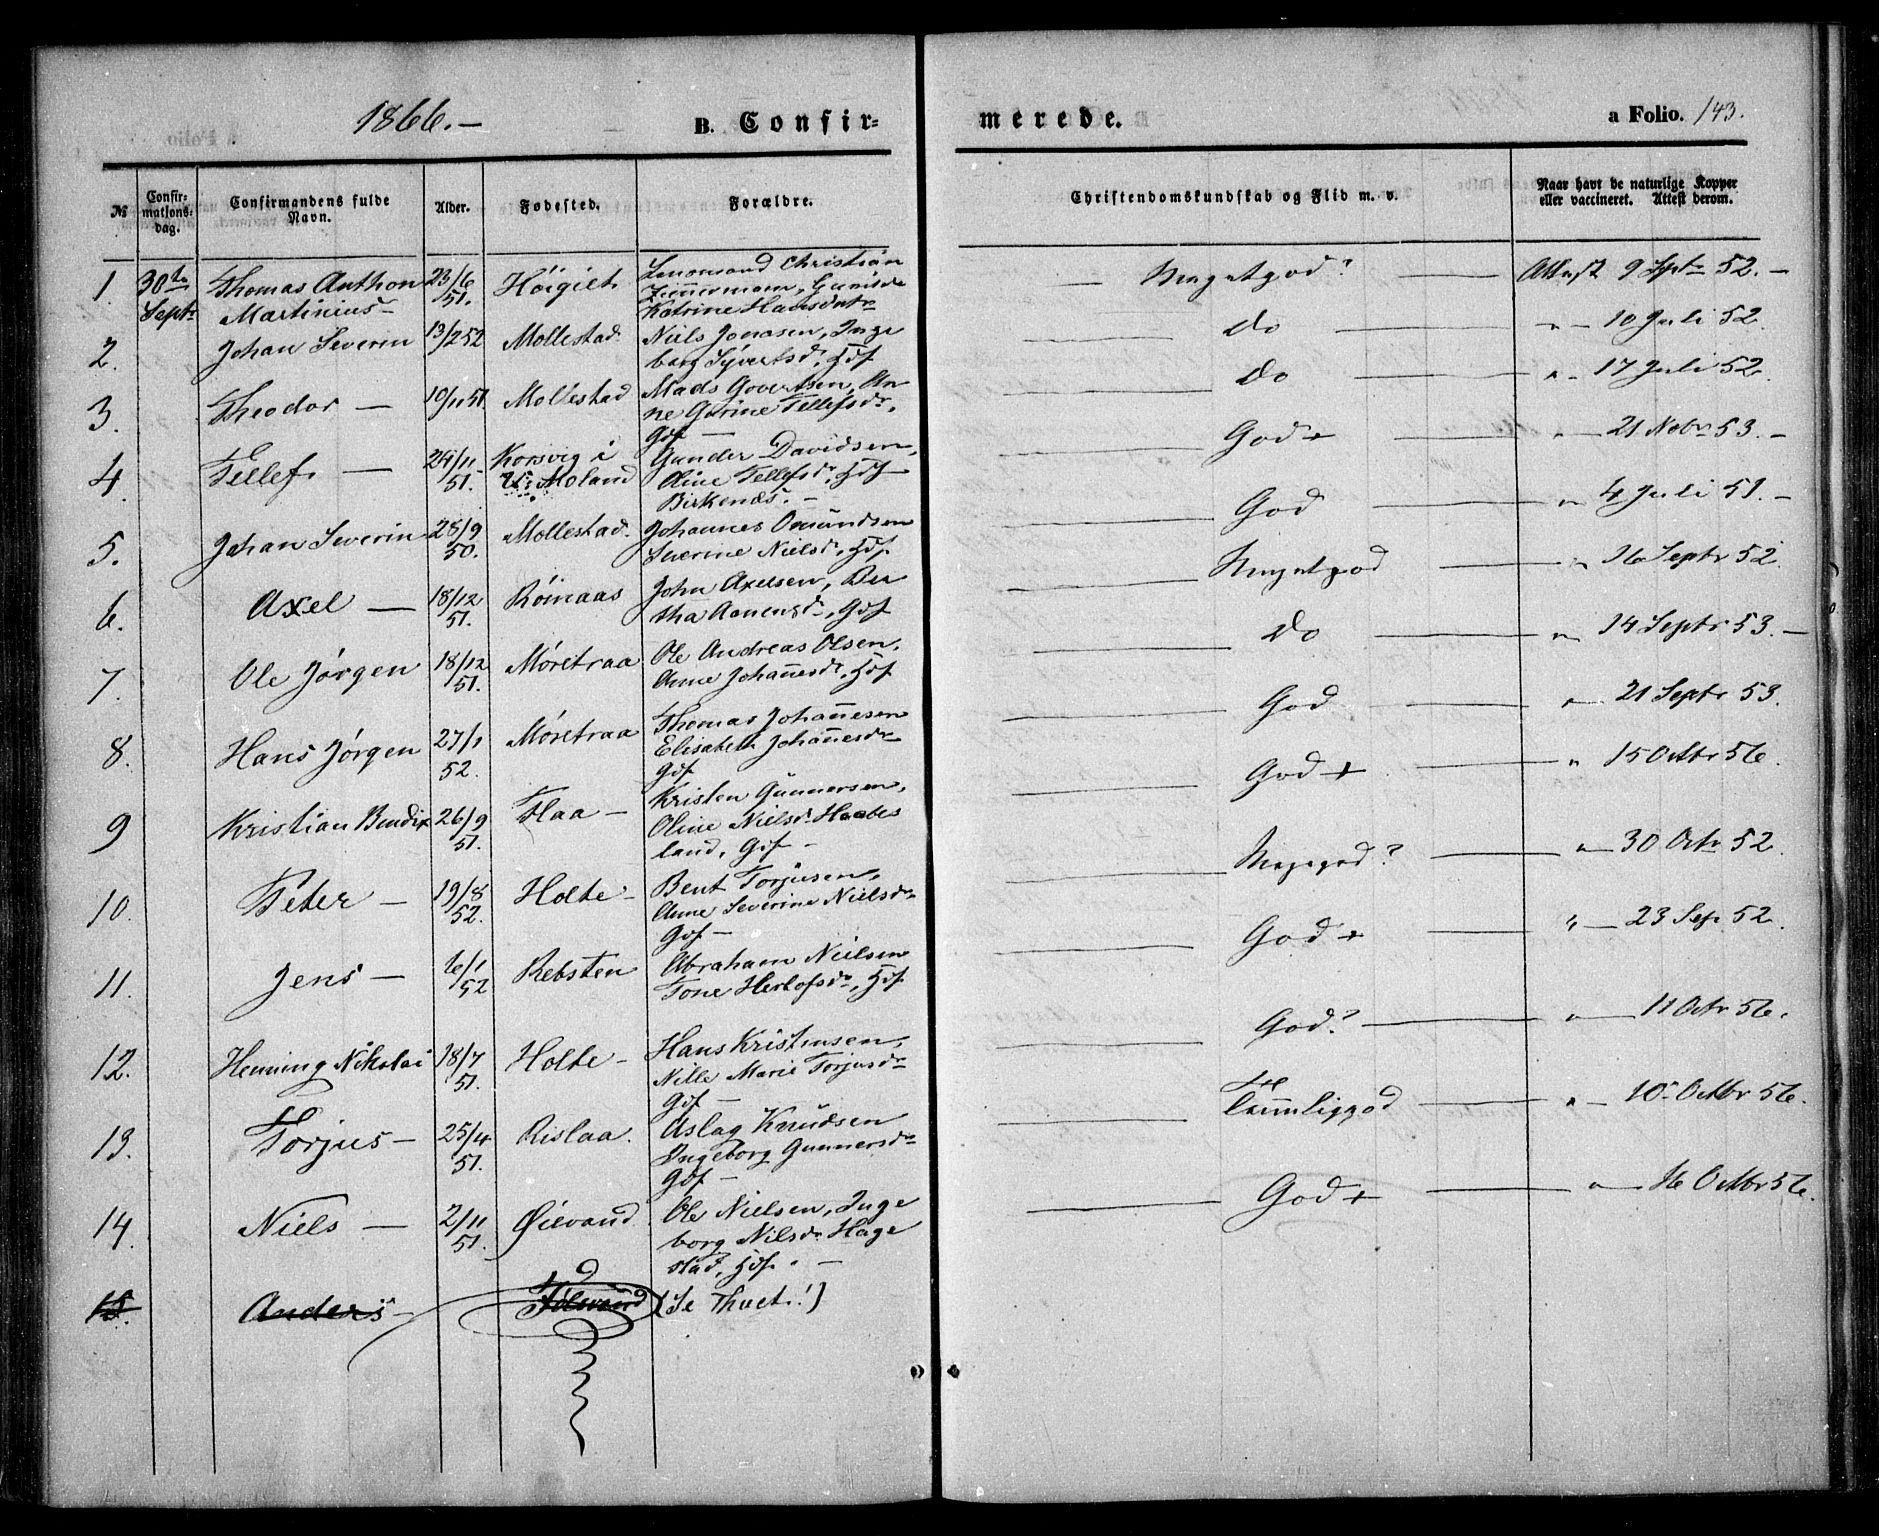 1866.–
B. Confir-
merede.
a Folio. 143.
№
Confir-
mations-
dag.
Confirmandens fulde
Navn.
Alder.
Fødested.
Forældre.
Christendomskundskab og Flid m. v.
Naar havt de naturlige Kopper
eller vaccineret. Attest derom.
1. 30te Thomas Anthon 23/6 Høigilt Christian
Septr Martinius– 51. Zimmermann,
Katrine Hansdatr
Megetgod? Attest 9 Septr 52.–
2. Johan Severin 13/2 52 Mollestad. Niels Jonasen, Inge
borg Syvertsd., Gdf
Do " – 10 Juli 52.
3. Theodor – 10/11 51 Mollestad Mads Govertsen, An
ne Gurine Tellefsdr,
Gdf –
Do " – 17 Juli 52.
4. Tellef – 24/11 Korsvig i Gunder Davidsen,
51. V: Moland Oline Tellefsdr, Gdf
Birkenes. –
God + " – 21 Nobr 53.–
5. Johan Severin 28/9 Mollestad. Johannes Omundsen
50. Severine Nielsd., Gdf
God " 4 Juli 51.–
6. Axel – 18/12 Røinaas John Axelsen, Ber
51. tha Aanensdr, Gdf
Megetgod " 16 Septr 52
7. Ole Jørgen 18/12 Møretraa Ole Andreas Olsen,
51. Anne Johannesdr, Gdf
Do " 14 Septr 53.–
8. Hans Jørgen 27/1 Møretraa Thomas Johannesen
52. Elisabeth Johannesdr
Gdf
God " 21 Septr 53.
9 Kristian Bendix 26/9 Flaa – Kristen Gunnersen,
51. Oline Nielsdr Haabes
land, Gdf –
God + " 15 Octbr 56.
10. Peter – 19/8 Holte – Bent Torjusen,
52. Anne Severine Nielsdr
Gdf –
Megegod? " 30 Octr 52
11. Jens – 6/1 Rebsten Abraham Nielsen
52 Tone Herlofsdr, Gdf
God + " – 23 Sep 52.
12. Henning Nikolai 18/7 Holte – Hans Kristensen,
51. Nille Marie Torjusdr
Gdf –
God? " – 11 Octr 56.
13. Torjus – 25/4 Rislaa. Aslag Knudsen
51. Ingeborg Gunnersdr
Gdf –
Temmeliggod " – 10 Octbr 56.
14. Niels – 2/11 Øievand Ole Nielsen, Inge
51. borg Nilsdr Hage
stad, Gdf. –
God + " – 16 Octbr 56.
15. Anders – (Se Thvet!)